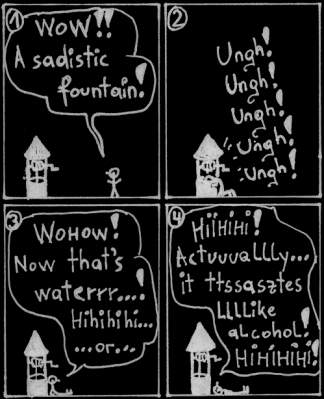 1
WOW!!
A sadistic
fountain!
2
Ungh!
Ungh!
Ungh!
Ungh!
Ungh!
3
WOHOW!
Now that's
waterrr....!
Hihihihi...
...or...
4
HiiHiHi!
Actuuuallly...
it ttssasztes
LLLLike
aLcohoL!
HiHiHiHi!